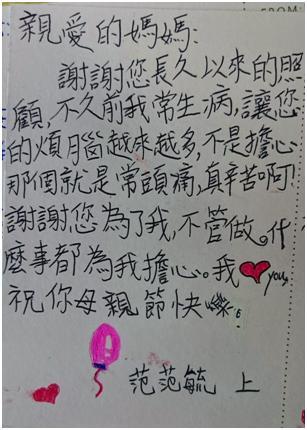 親愛的媽媽:
謝謝您長久以來的照
顧,不久前我常生病,讓您
的煩腦越來越多,不是擔心
那個就是常頭痛,真辛苦啊!
謝謝您為了我,不管做。什
麼事都為我擔心。我❤you,
祝你母親節快樂。
范范毓 上